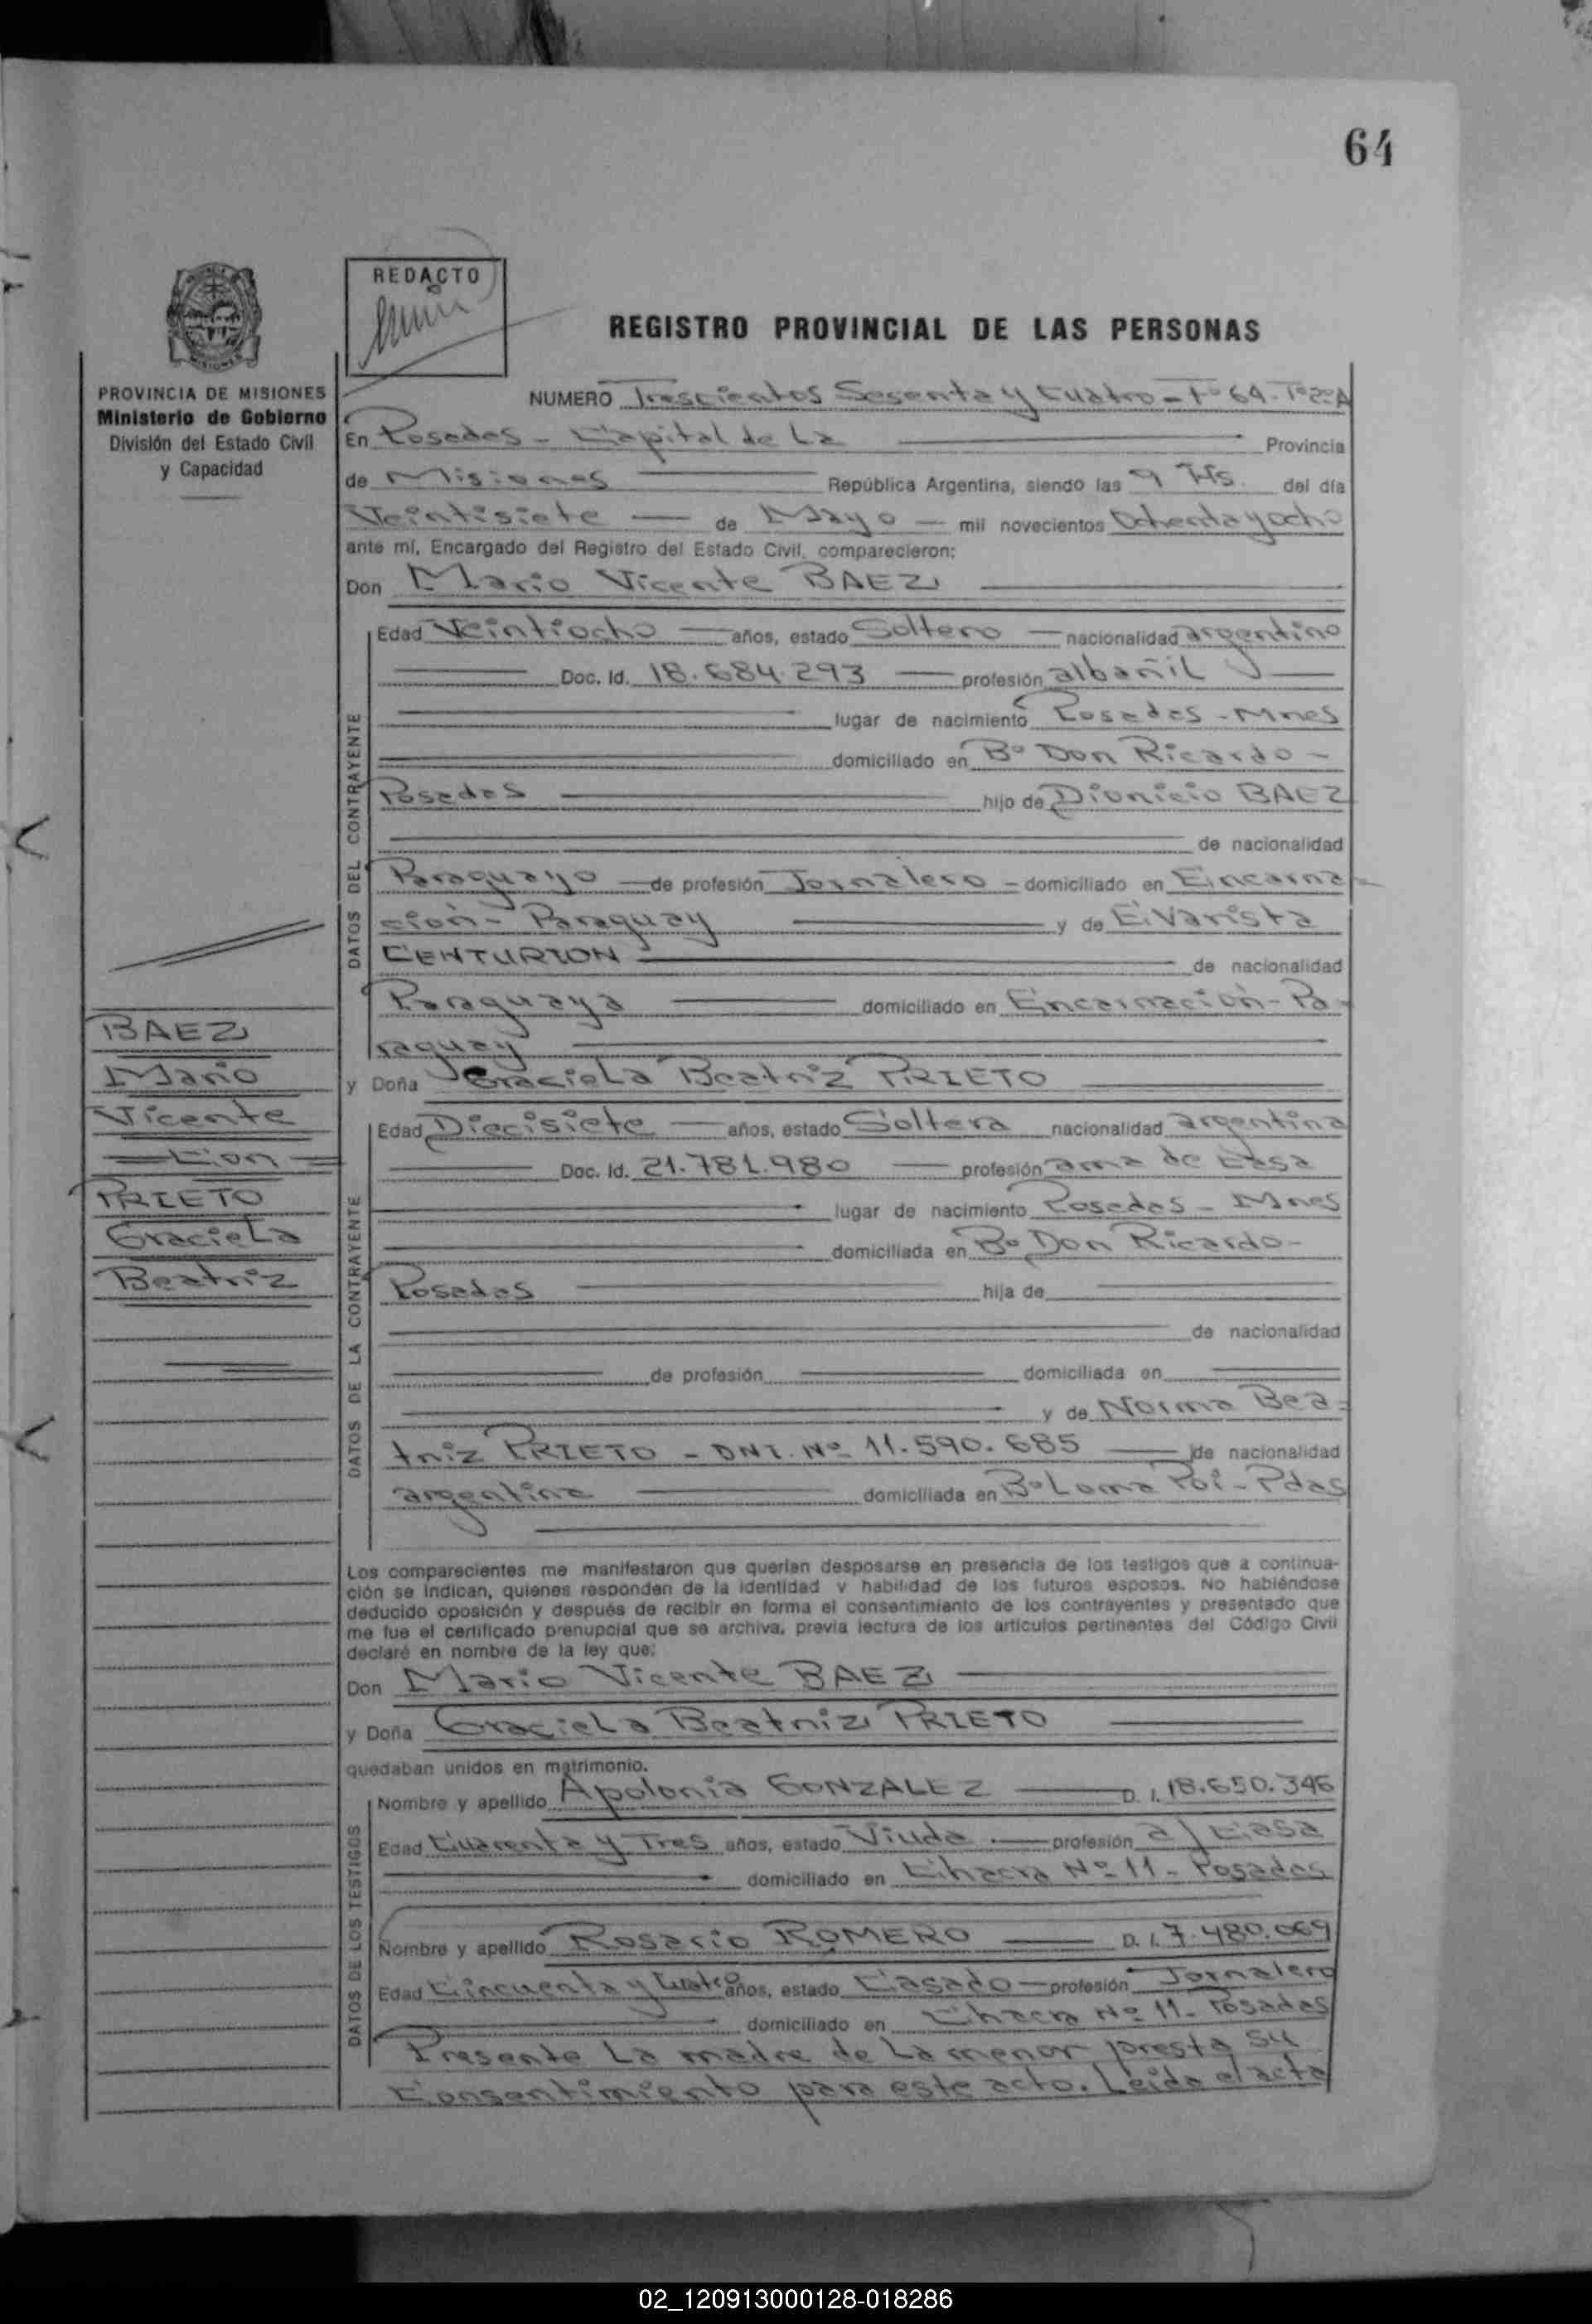 64
REDACTO
REGISTRO PROVINCIAL DE LAS PERSONAS
PROVINCIA DE MISIONES
Ministerio de Gobierno
División del Estado Civil
y Capacidad
NUMERO Trescientos Sesenta y Cuatro - Fº 64 - Tº 2º A
En Posadas - Capital de La Provincia
de Misiones República Argentina, siendo las 9 Hs. del día
Veintisiete de Mayo mil novecientos Ochenta y ocho
ante mí, Encargado del Registro del Estado Civil, comparecieron:
Don Mario Vicente BAEZ
DATOS DEL CONTRAYENTE
Edad Veintiocho años, estado Soltero nacionalidad argentino
Doc. Id. 18.684.293 profesión albañil
lugar de nacimiento Posadas - Mnes
domiciliado en Bº Don Ricardo -
Posadas hijo de Dionicio BAEZ
de nacionalidad
Paraguayo de profesión Jornalero - domiciliado en Encarna-
ción - Paraguay y de Evarista
CENTURION de nacionalidad
Paraguaya domiciliado en Encarnación - Pa-
raguay
BAEZ
Mario
Vicente
= Con =
PRIETO
Graciela
Beatriz
y Doña Graciela Beatriz PRIETO
DATOS DE LA CONTRAYENTE
Edad Diecisiete años, estado Soltera nacionalidad argentina
Doc. Id. 21.781.980 profesión ama de casa
lugar de nacimiento Posadas - Mnes
domiciliada en Bº Don Ricardo -
Posadas hija de
de nacionalidad
de profesión domiciliada en
y de Norma Bea-
triz PRIETO - DNI. Nº 11.590.685 de nacionalidad
argentina domiciliada en Bº Loma Poi - Pdas
Los comparecientes me manifestaron que querían desposarse en presencia de los testigos que a continua-
ción se indican, quienes responden de la identidad y habilidad de los futuros esposos. No habiéndose
deducido oposición y después de recibir en forma el consentimiento de los contrayentes y presentado que
me fue el certificado prenupcial que se archiva, previa lectura de los artículos pertinentes del Código Civil
declaré en nombre de la ley que:
Don Mario Vicente BAEZ
y Doña Graciela Beatriz PRIETO
quedaban unidos en matrimonio.
DATOS DE LOS TESTIGOS
Nombre y apellido Apolonia GONZALEZ D. I. 18.650.346
Edad Cuarenta y Tres años, estado Viuda profesión a/ Casa
domiciliado en Chacra Nº 11 - Posadas
Nombre y apellido Rosario ROMERO D. I. 7.480.069
Edad Cincuenta y Cuatro años, estado Casado profesión Jornalero
domiciliado en Chacra Nº 11 - Posadas
Presente La madre de La menor presta su
Consentimiento para este acto. Leida el acta
02_120913000128-018286